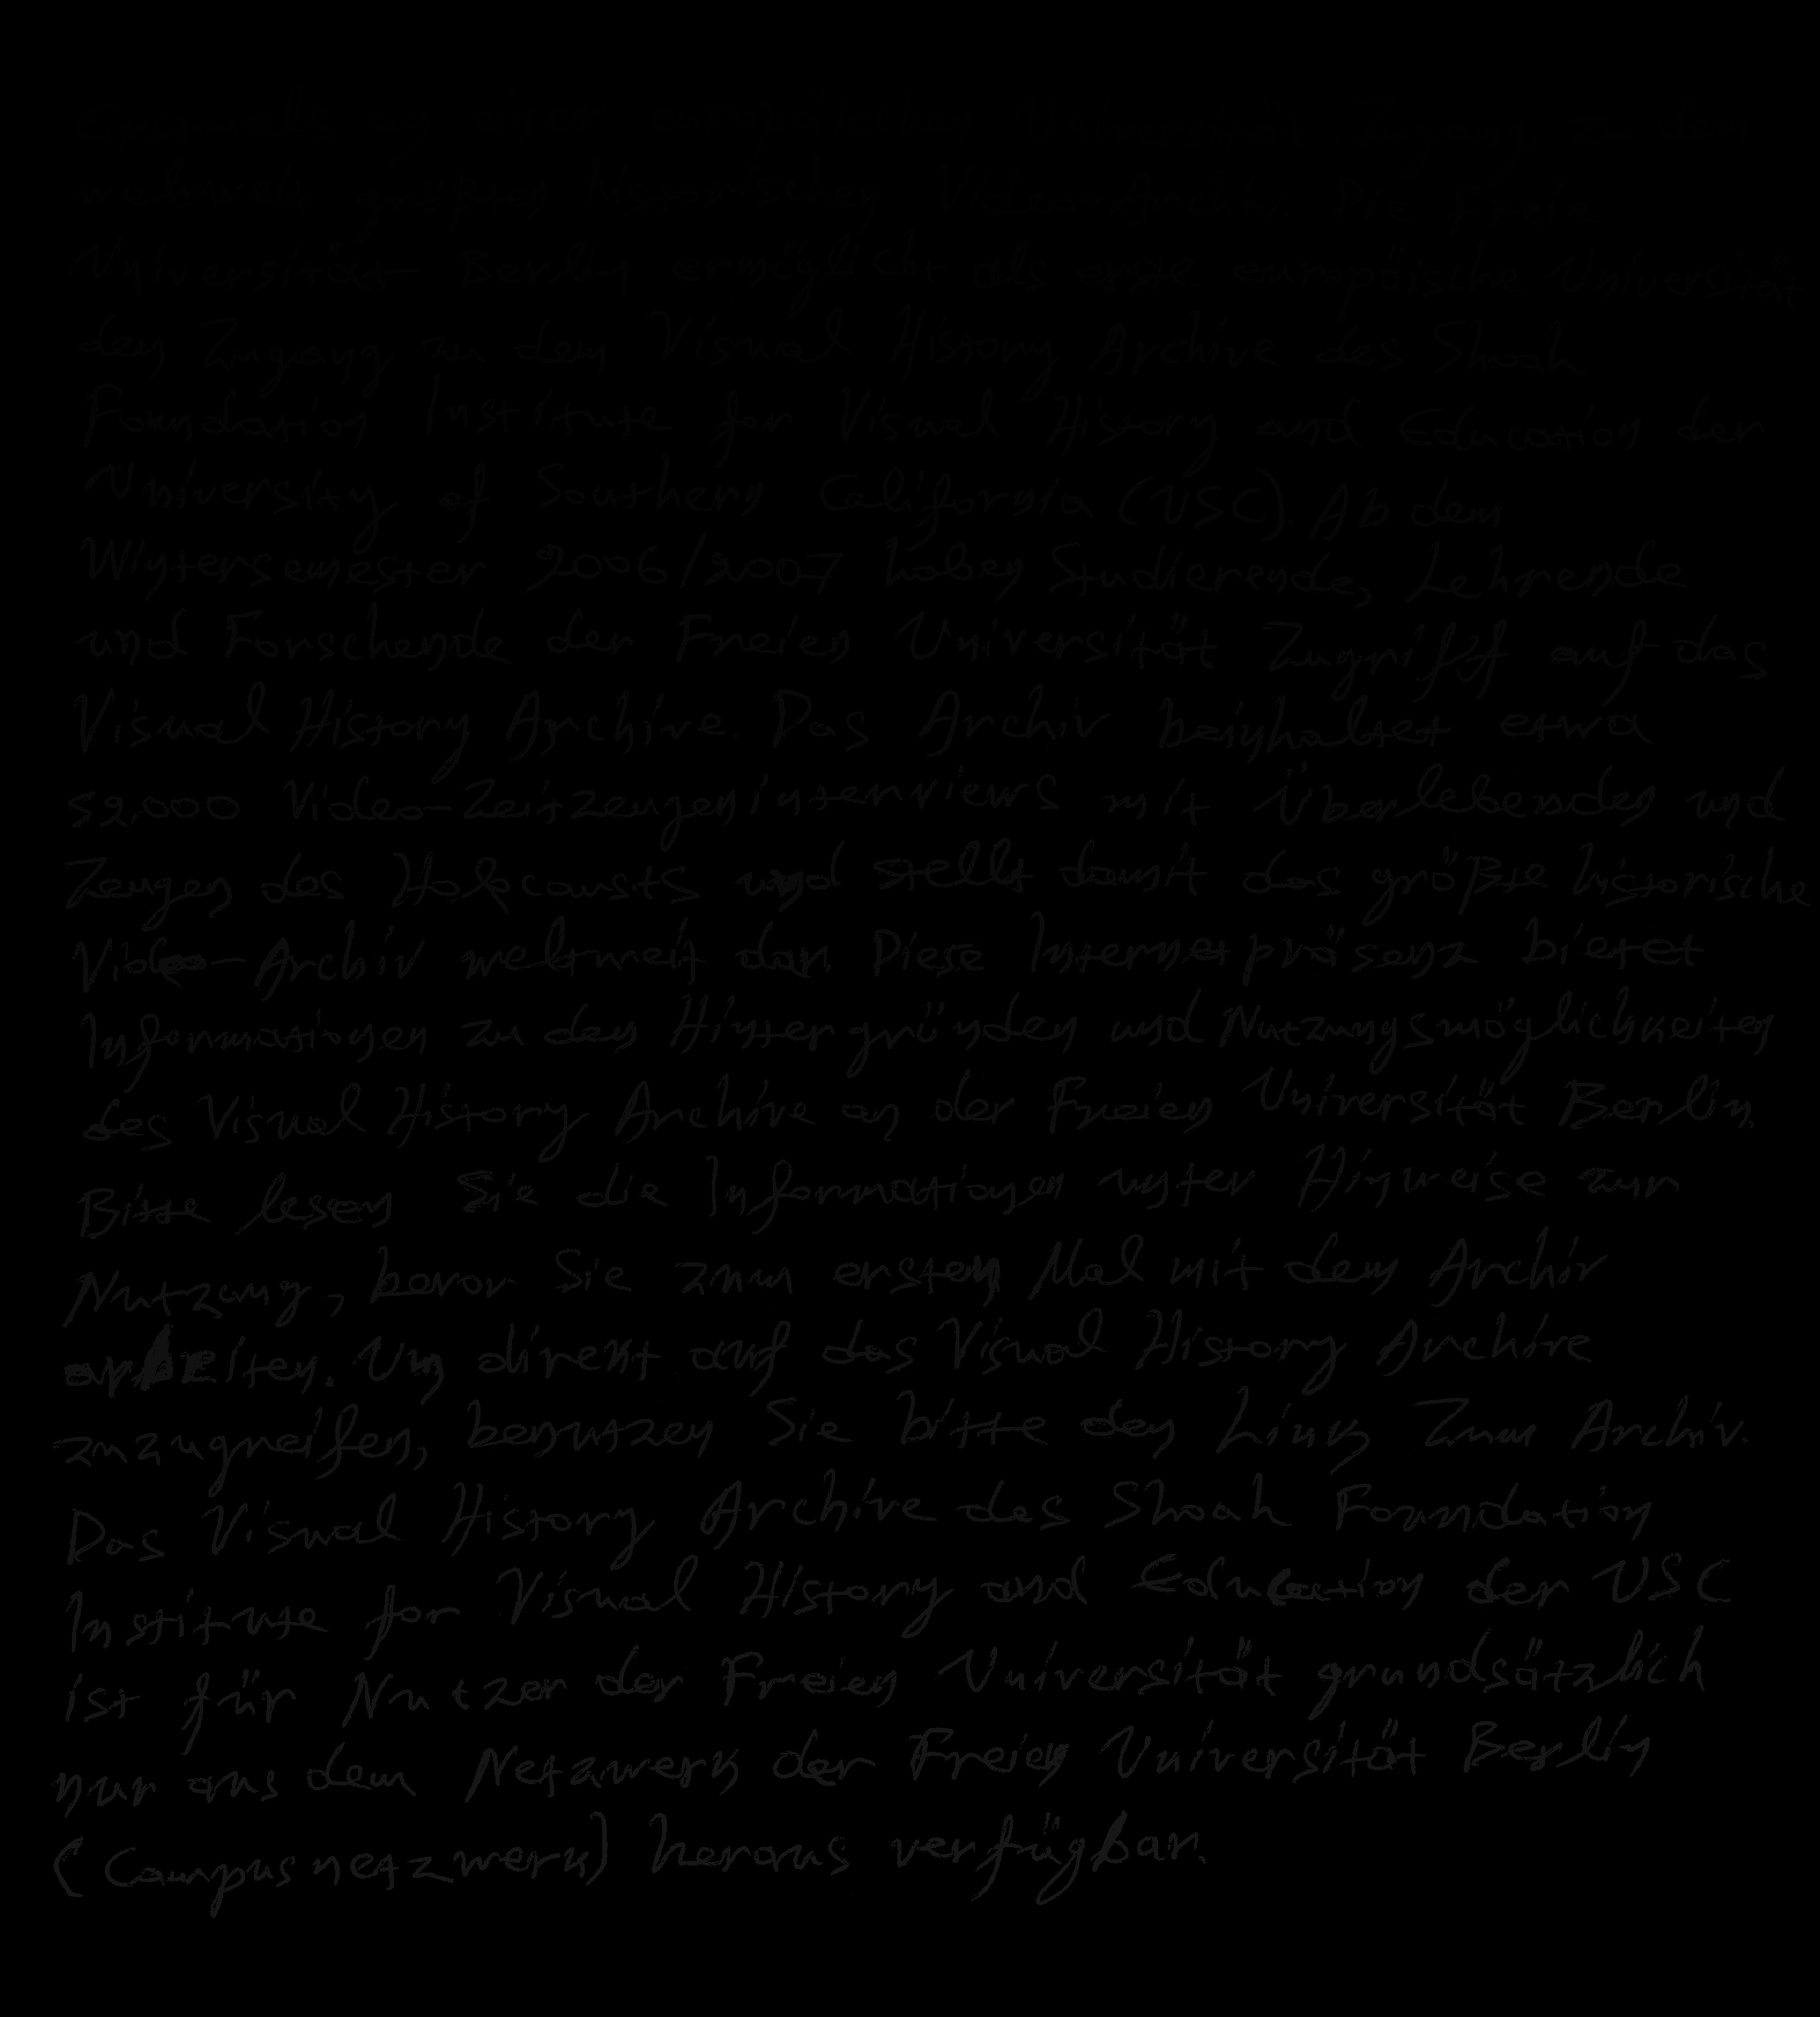 weltweit größten historischen Video-Archiv Die Freie
Universität Berlin ermöglicht als erste europäische Universität
den Zugang zu dem Visual History Archive des Shoah
Foundation Institute for Visual History and Education der
University of Southern California (USC). Ab dem
Wintersemester 2006/2007 haben Studierende, Lehrende
und Forschende der Freien Universität Zugriff auf das
Visual History Archive. Das Archiv beinhaltet etwa
52.000 Video-Zeitzeugeninterviews mit Überlebenden und
Zeugen des Holocausts und stellt damit das größte historische
Video-Archiv weltweit dar. Diese Internetpräsenz bietet
Informationen zu den Hintergründen und Nutzungsmöglichkeiten
des Visual History Archive an der Freien Universität Berlin.
Bitte lesen Sie die Informationen unter Hinweise zur
Nutzung, bevor Sie zum ersten Mal mit dem Archiv
arbeiten. Um direkt auf das Visual History Archive
zuzugreifen, benutzen Sie bitte den Link Zum Archiv.
Das Visual History Archive des Shoah Foundation
Institute for Visual History and Education der USC
ist für Nutzer der Freien Universität grundsätzlich
nur aus dem Netzwerk der Freien Universität Berlin
(Campusnetzwerk) heraus verfügbar.